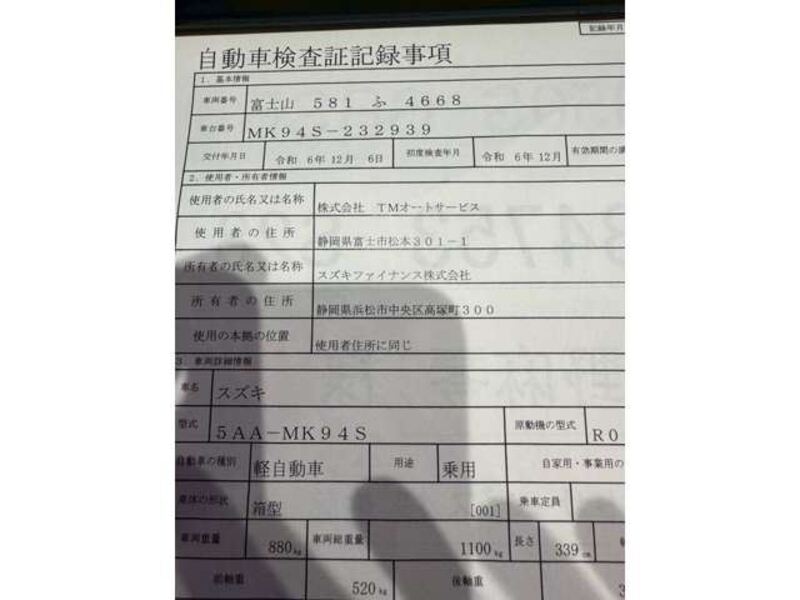 記録年月
自動車検査証記録事項
１．基本情報
車両番号 富士山 ５８１ ふ ４６６８
車台番号 ＭＫ９４Ｓ－２３２９３９
交付年月日 令和 ６年１２月 ６日 初度検査年月 令和 ６年１２月 有効期間の満
２．使用者・所有者情報
使用者の氏名又は名称 株式会社 ＴＭオートサービス
使用者の住所 静岡県富士市松本３０１－１
所有者の氏名又は名称 スズキファイナンス株式会社
所有者の住所 静岡県浜松市中央区高塚町３００
使用の本拠の位置 使用者住所に同じ
３．車両詳細情報
車名 スズキ
型式 ５ＡＡ－ＭＫ９４Ｓ 原動機の型式 Ｒ０
自動車の種別 軽自動車 用途 乗用 自家用・事業用の
車体の形状 箱型 [001] 乗車定員
車両重量 880kg 車両総重量 1100kg 長さ 339cm
前軸重 520kg 後軸重 3